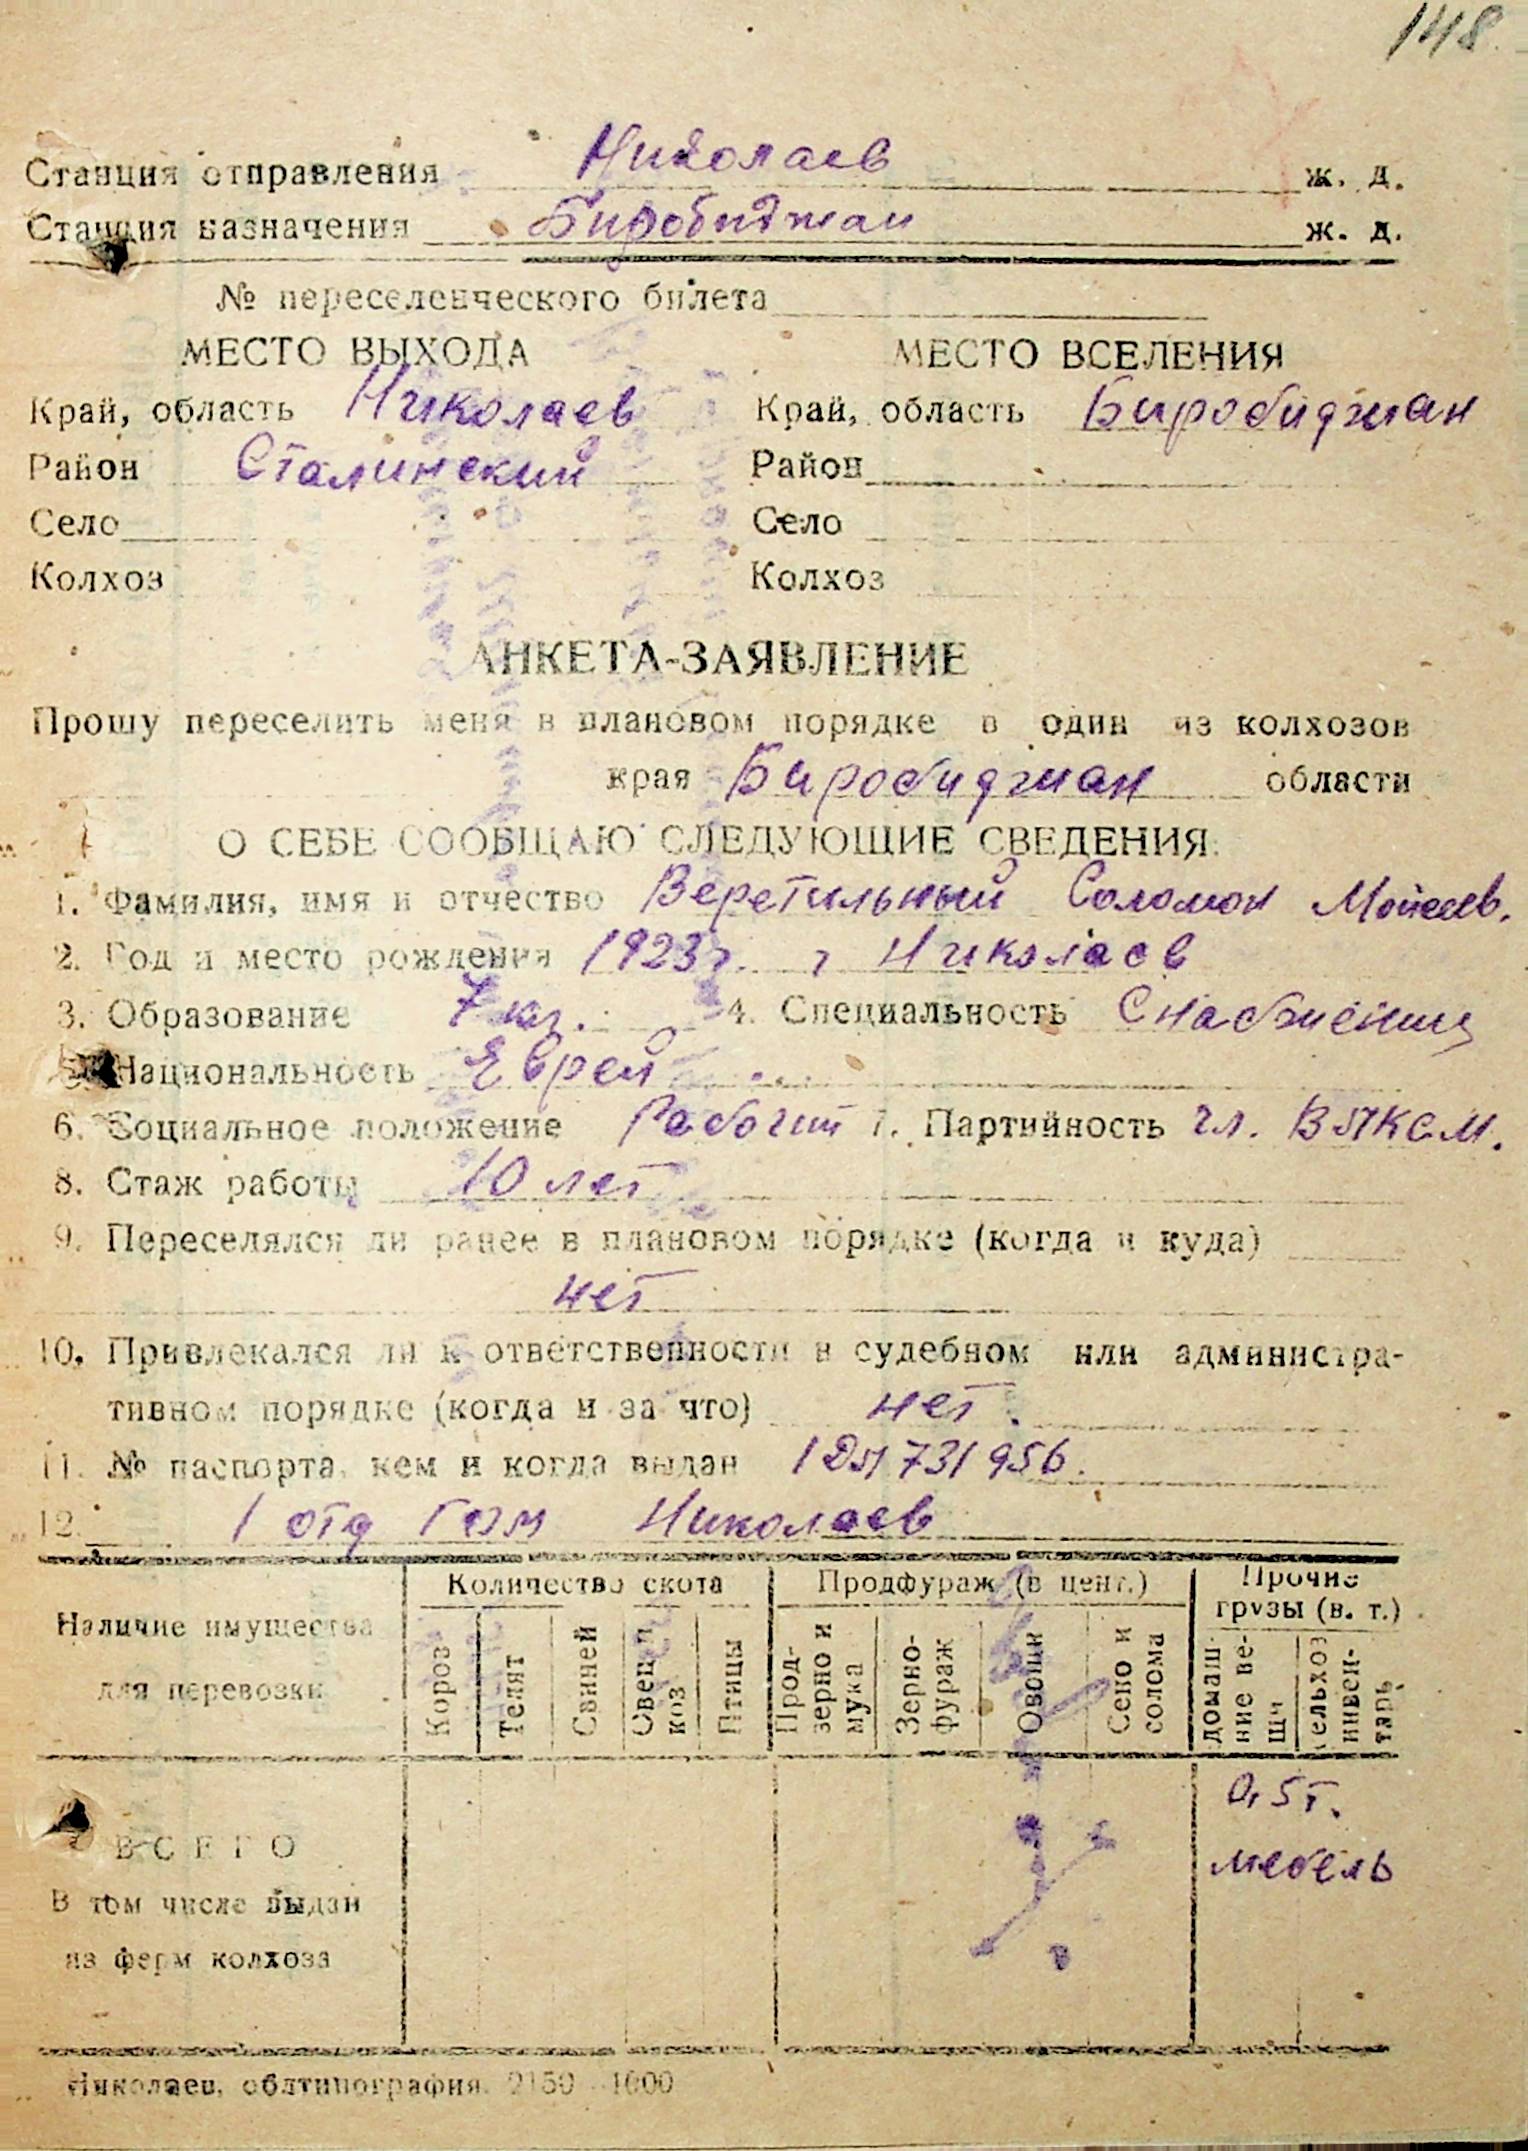 148.
Станция отправления Николаев ж. д.
Станция назначения Биробиджан ж. д.
№ переселенческого билета
МЕСТО ВЫХОДА МЕСТО ВСЕЛЕНИЯ
Край, область Николаев Край, область Биробиджан
Район Сталинский Район
Село Село
Колхоз Колхоз
АНКЕТА-ЗАЯВЛЕНИЕ
Прошу переселить меня в плановом порядке в один из колхозов
края Биробиджан области
О СЕБЕ СООБЩАЮ СЛЕДУЮЩИЕ СВЕДЕНИЯ:
1. Фамилия, имя и отчество Веретильный Соломон Моисеев.
2. Год и место рождения 1923 г. г Николаев
3. Образование 7 кл. 4. Специальность Снабженец
5. Национальность Еврей
6. Социальное положение Рабочий 7. Партийность чл. ВЛКСМ.
8. Стаж работы 10 лет
9. Переселялся ли ранее в плановом порядке (когда и куда)
нет
10. Привлекался ли к ответственности в судебном или администра-
тивном порядке (когда и за что) нет.
11. № паспорта, кем и когда выдан
12. 1 отд ГОМ Николаев
Наличие имущества для перевозки
Количество скота Продфураж (в цент.) Прочие грузы (в. т.)
Короз Телят Свиней Овец и коз Птицы Прод-зерно и мука Зерно-фураж Овощи Сено и солома домаш-ние ве-щи сельхоз инвен-тарь
0,5 т.
ВСЕГО мебель
В том числе выдан
из ферм колхоза
Николаев, облтипография. 2150—1000